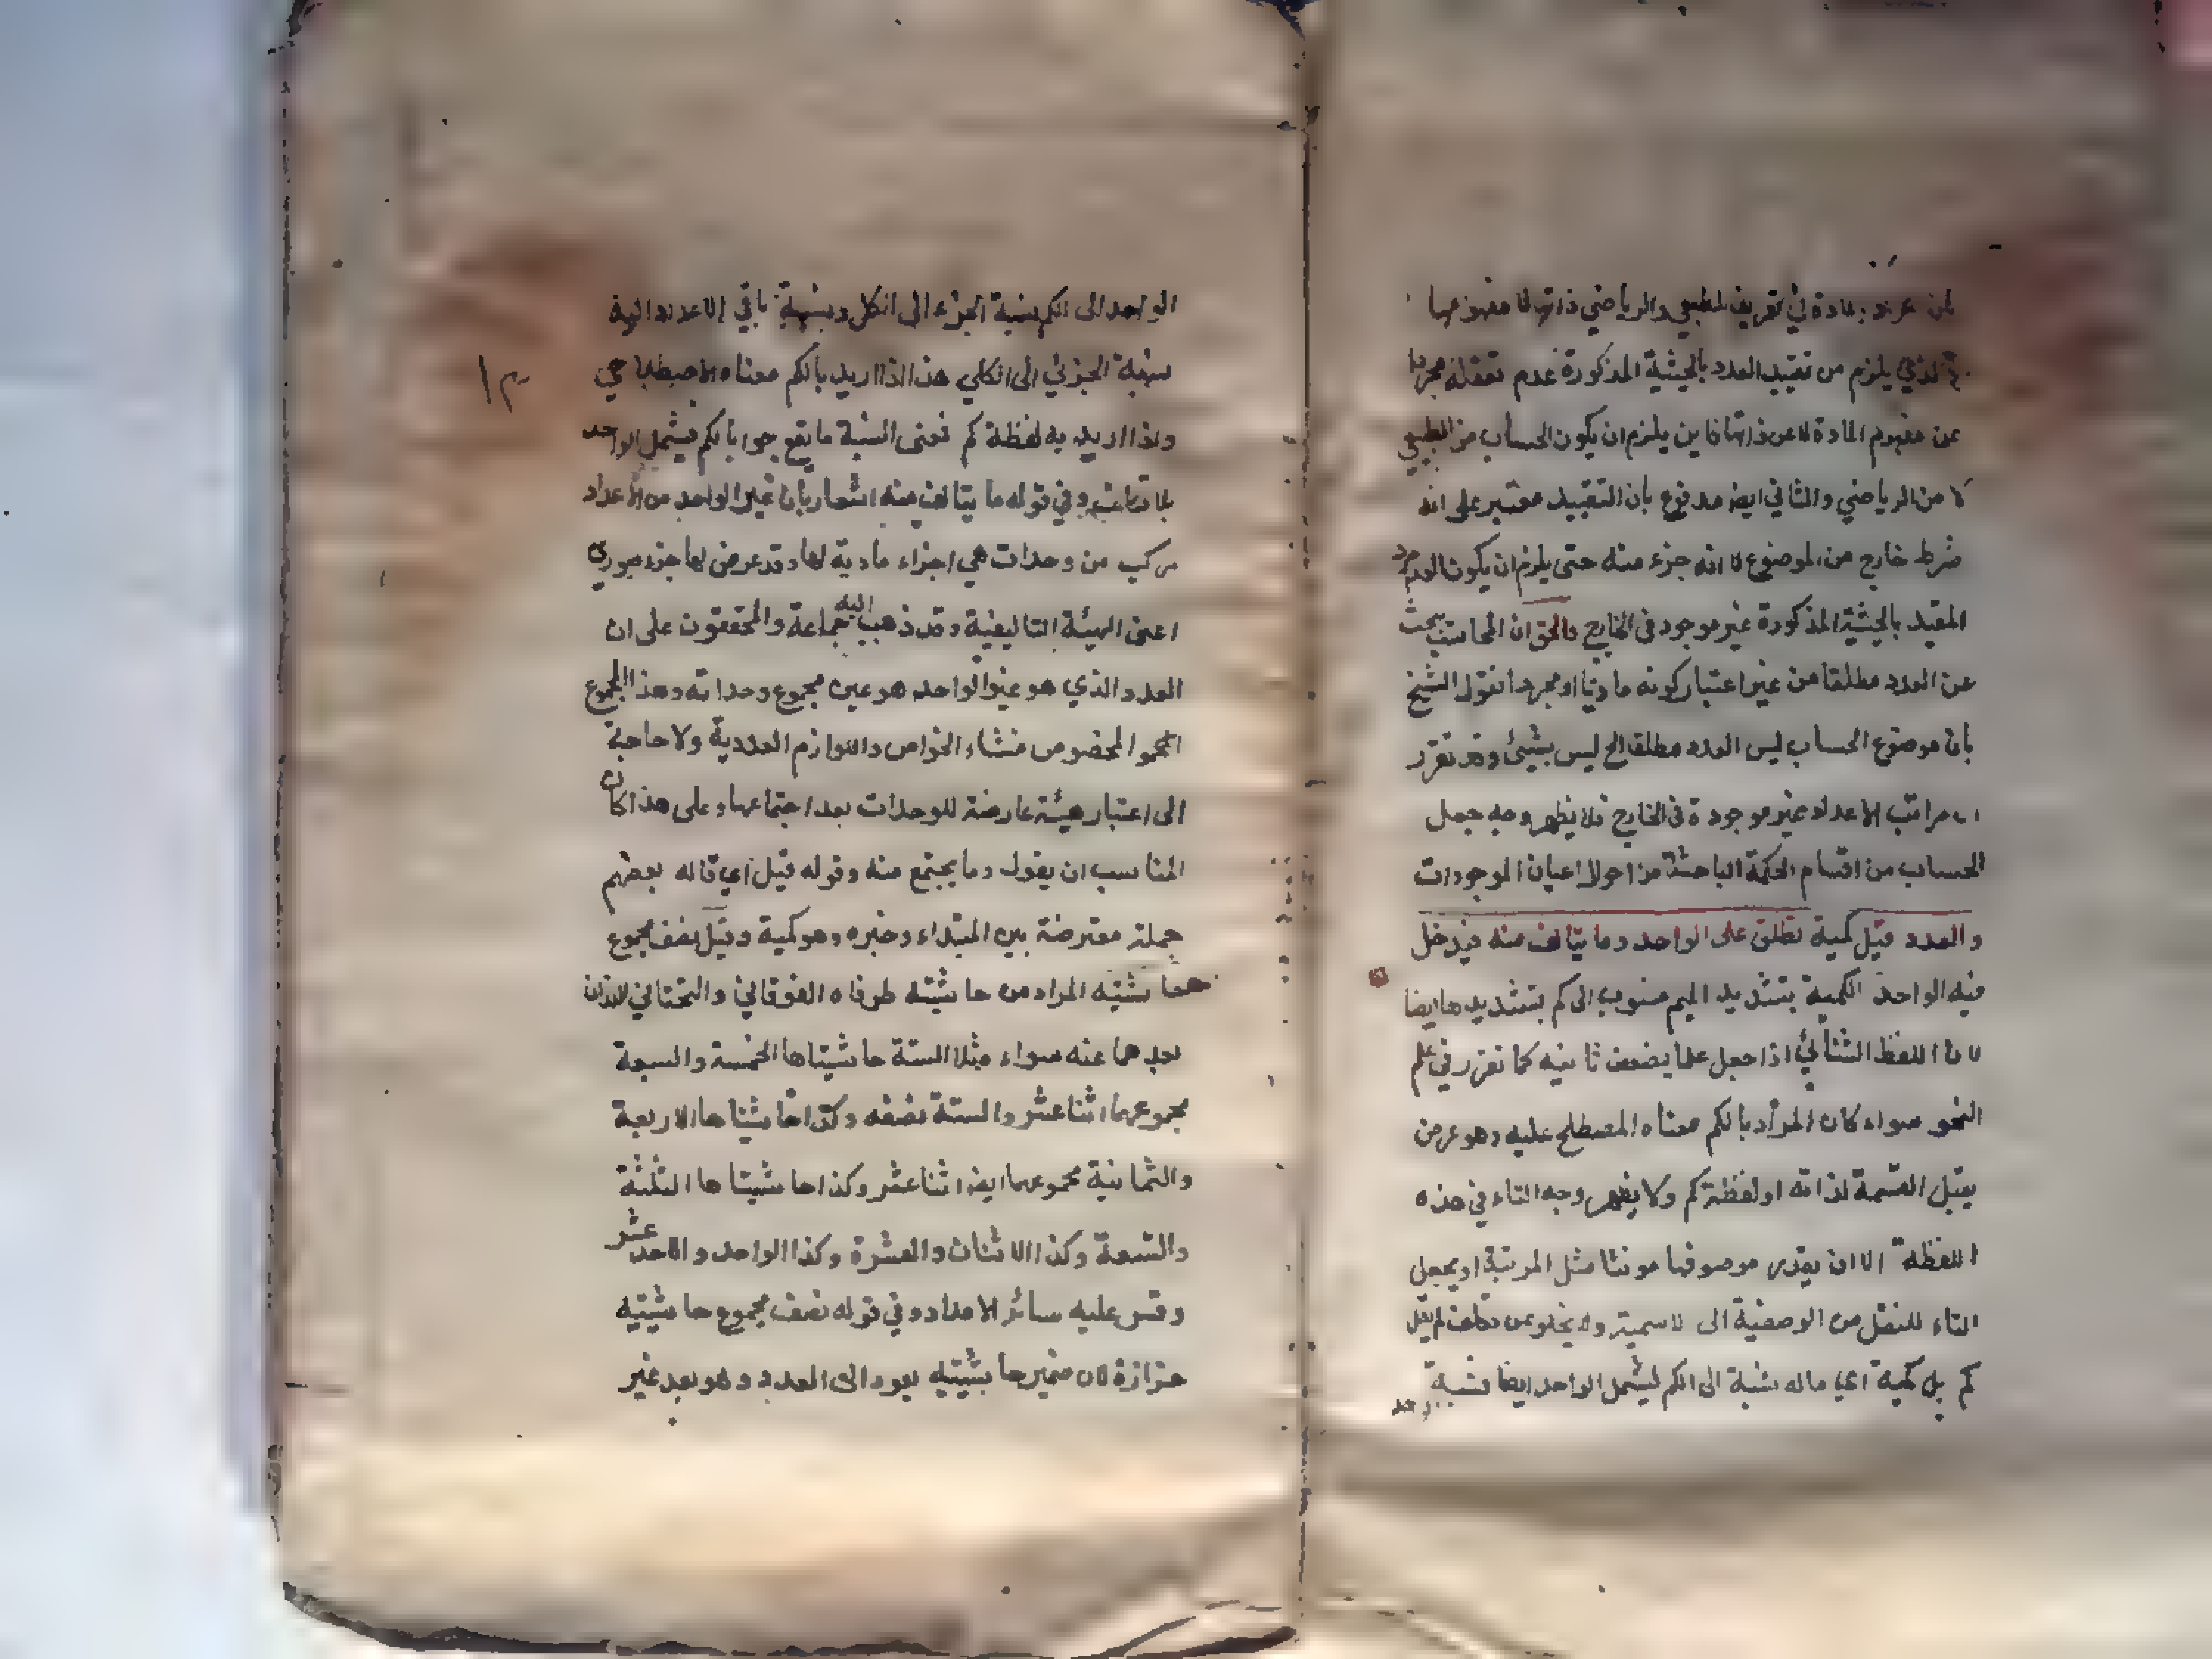 بالمادة في تعريف الطبيعي والرياضي ذاتها لا مفهومها
الذي يلزم من تقييد العدد بالحيثية المذكورة عدم تعقله مجردا
عن مفهوم المادة لا عن ذاتها فاين يلزم ان يكون الحساب من الطبيعي
لا من الرياضي والثاني ايضا مدفوع بان التقييد معتبر على انه
شرط خارج من الموضوع لا انه جزء منه حتى يلزم ان يكون العدد
المقيد بالحيثية المذكورة غير موجود في الخارج والحق ان المحاسب يبحث
عن العدد مطلقا من غير اعتبار كونه ماديا او مجردا فقول الشيخ
بان موضوع الحساب ليس العدد مطلقا الخ ليس بشيئ وقد تقرر
ان مراتب الاعداد غير موجودة في الخارج فلا يظهر وجه جعل
الحساب من اقسام الحكمة الباحثة من احوال اعيان الموجودات
والعدد قيل كمية تطلق على الواحد وما يتالف منه فيدخل
فيه الواحد الكمية بتشديد الميم منسوب الى كم بتشديدها ايضا
لان اللفظ الثنائي اذا جعل علما يضعف ثانيه كما تقرر في علم
النحو سواء كان المراد بالكم معناه المصطلح عليه وهو عرض
يقبل القسمة لذاته او لفظة كم ولا يظهر وجه التاء في هذه
اللفظة الا ان يقدر موصوفها مونثا مثل المرتبة او يجعل
التاء للنقل من الوصفية الى الاسمية ولا يخلو عن تكلف لم يقل
كم بل كمية اي ماله نسبة الى الكم ليشمل الواحد ايضا فنسبة
الواحد الى الكم نسبة الجزء الى الكل ونسبة باقي الاعداد اليه
نسبة الجزئي الى الكلي هذا اذا اريد بالكم معناه الاصطلاحي
واذا اريد به لفظة كم فمعنى النسبة ما يقع جوابا بكم فيشمل الواحد
بلا تكلف وفي قوله ما يتالف منه اشعار بان غير الواحد من الاعداد
مركب من وحدات هي اجزاء مادية لها وقد عرض لها جزء صوري
اعني الهيئة التاليفية وقد ذهب اليه جماعة والمحققون على ان
العدد الذي هو غير الواحد هو عين مجموع وحداته وهذا المجموع
المخصوص منشاء الخواص واللوازم العددية ولا حاجة
الى اعتبار هيئة عارضة للوحدات بعد اجتماعها وعلى هذا كان
المناسب ان يقول وما يجتمع منه وقوله قيل اي قاله بعضهم
جملة معترضة بين المبتداء وخبره وهو كمية وقيل نصف مجموع
حاشيتيه المراد من حاشيتيه طرفاه الفوقاني والتحتاني اللذان
بعدهما عنه سواء مثلا الستة حاشيتاها الخمسة والسبعة
مجموعهما اثنا عشر والستة نصفه وكذا حاشيتاها الاربعة
والثمانية مجموعهما ايضا اثنا عشر وكذا حاشيتاها الثلثة
والتسعة وكذا الاثنان والعشرة وكذا الواحد والاحد عشر
وقس عليه سائر الاعداد وفي قوله نصف مجموع حاشيتيه
حزازة لان ضمير حاشيتيه يعود الى العدد وهو بعد غير